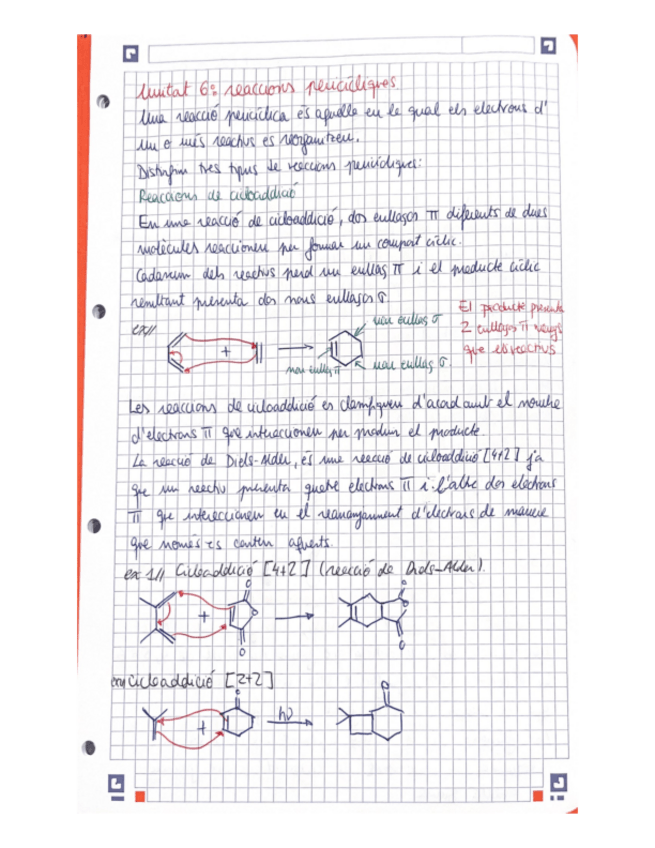 Unitat 6: reaccions pericícliques
Una reacció pericíclica és aquella en la qual els electrons d'
un o més reactius es reorganitzen.
Distingim tres tipus de reaccions pericícliques:
Reaccions de cicloaddició
En una reacció de cicloaddició, dos enllaços π diferents de dues
molècules reaccionen per formar un compost cíclic.
Cadascun dels reactius perd un enllaç π i el producte cíclic
resultant presenta dos nous enllaços σ.
El producte presenta
2 enllaços π menys
que els reactius
ex//
nou enllaç σ
+
nou enllaç π
nou enllaç σ.
Les reaccions de cicloaddició es classifiquen d'acord amb el nombre
d'electrons π que interaccionen per produir el producte.
La reacció de Diels-Alder, és una reacció de cicloaddició [4+2] ja
que un reactiu presenta quatre electrons π i l'altre dos electrons
π que interaccionen en el reordenament d'electrons de manera
que només es conten aquests.
ex 1// Cicloaddició [4+2] (reacció de Diels-Alder).
O
+
O
O
O
O
O
cicloaddició [2+2]
O
+
hν
O